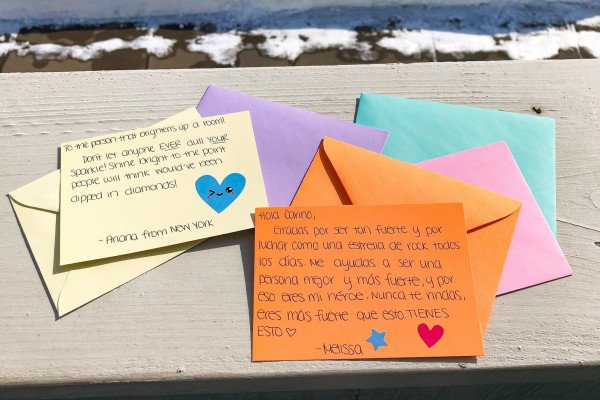 To the person that brightens up a room!
Don't let anyone EVER dull YOUR
sparkle! Shine bright to the point
people will think would've been
dipped in diamonds!
- Ariana from NEW YORK
Hola Cariño,
Gracias por ser tan fuerte y por
luchar como una estrella de rock todos
los días. Me ayudas a ser una
persona mejor y más fuerte, y por
eso eres mi héroe. Nunca te rindas,
eres más fuerte que esto. TIENES
ESTO ♡
- Melissa